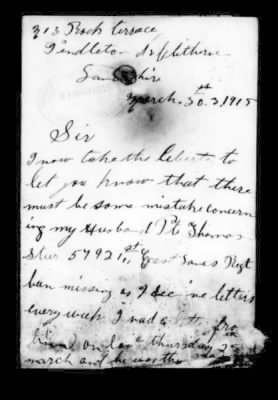 313 Rock Terrace
Pendleton
Lancashire
March. 30.3.1915
Sir
I now take the Liberty to
let you know that there
must be some mistake concern
ing my Husband Pte Thomas
5792 1st East Lancs Regt
been missing as I rec've letters
every week I had a
on last thursday 25
march and he was